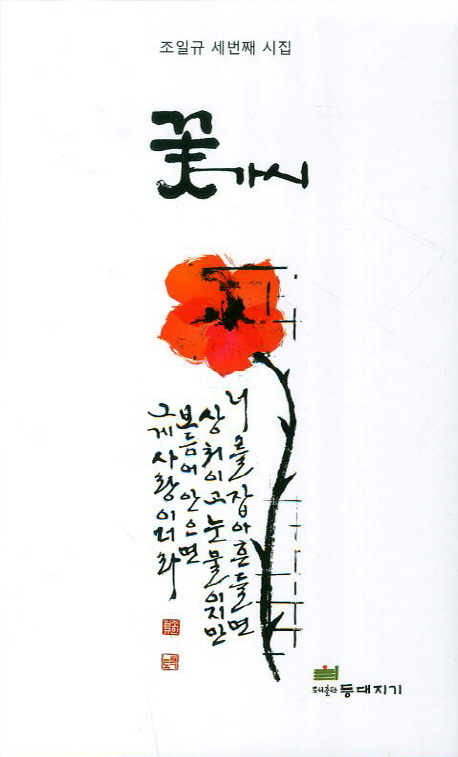 조일규 세번째 시집
꽃가시
너를 잡아 흔들면
상취이고 눈물이지만
보듬어 안으면
그게 사랑이더라
도서출판 등대지기